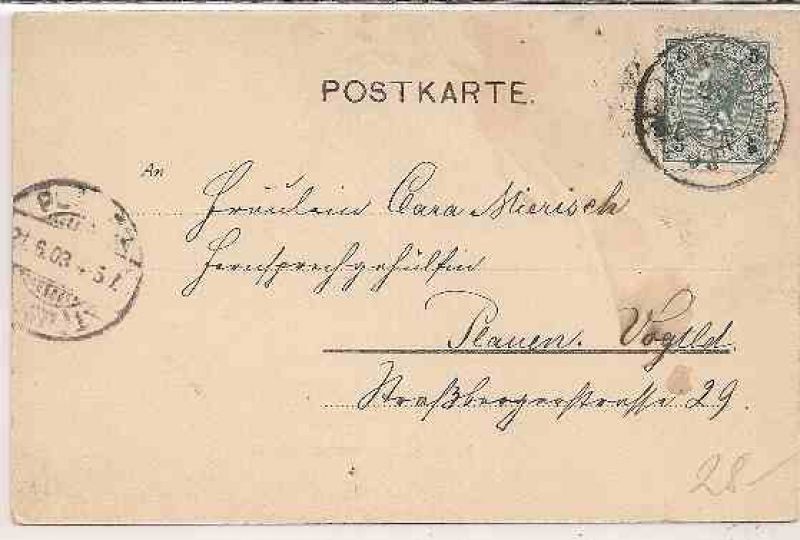 POSTKARTE.
An
Fräulein Cara Mierisch
Fernsprechgehülfin
Plauen. Vogtld.
Straßbergerstrasse 29.
21.6.03 5
28